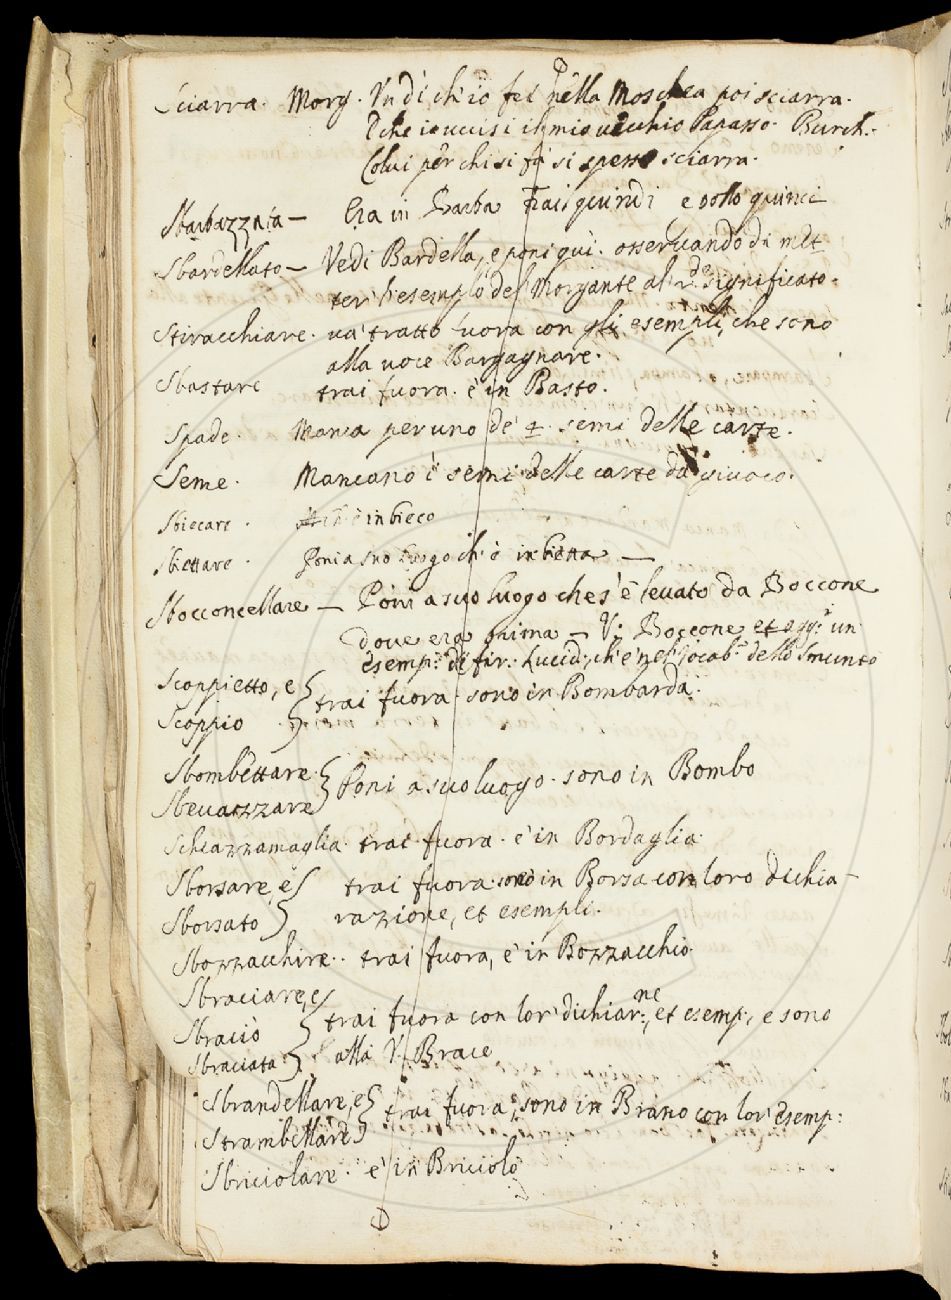 Sciarra. Morg. Un dì ch'io fei nella Moschea poi sciarra.
E che io uccisi il mio vecchio Papasso. Burch.
Colui per chi si fa si spesso sciarra.
Sbarbazzata — Era in Barba Traisi quindi e pollo quinci
Sbardellato — Vedi Bardella, e poni quì. osservando di met
ter l'esempio del Morgante al 2.do significato.
Stiracchiare. va tratto fuora con gli esempli, che sono
alla voce Bargagnare.
Sbastare trai fuora. è in Basto.
Spade. Manca per uno de' 4. semi delle carte.
Seme. Mancano i semi delle carte da giuoco.
Sbiecare. ch'è in bieco
Sbiettare. Poni a suo luogo ch'è in bietta —
Sbocconcellare — Poni a suo luogo che s'è levato da Boccone
dove era prima — V: Boccone et agg: un
esemp: di fir: Lucid: ch'è nel Vocab: dello Smunto
Scoppietto, e
Scoppio } trai fuora. sono in Bombarda.
Sbombettare
Sbevazzare } Poni a suo luogo. sono in Bombo
Schiazzamaglia. trai fuora. è in Bordaglia
Sborsare, e trai fuora. sono in Borsa con loro dichia-
Sborsato } razione, et esempli.
Sbozzacchire. trai fuora, è in Bozzacchio
Sbraciare, e
Sbraciò } trai fuora con lor dichiar:ne, et esemp:, e sono
Sbraciata alla V. Brace
Sbrandellare, e
Strambellare } trai fuora, sono in Brano con lor esemp:
Sbriciolare. è in Briciolo